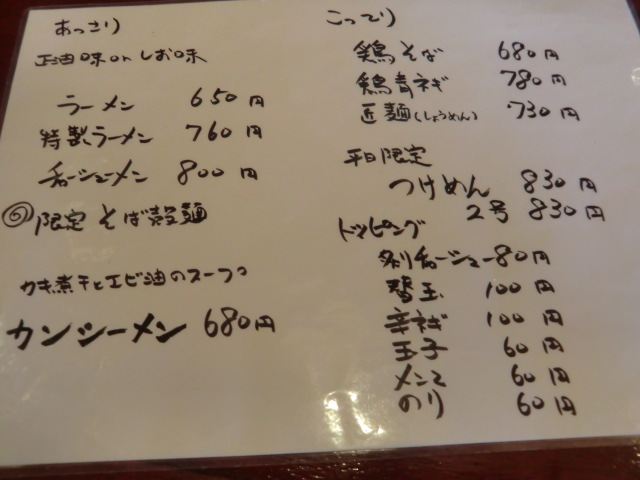 あっさり
正油味 or しお味
ラーメン 650円
特製ラーメン 760円
チャーシューメン 800円
限定 そば殻麺
カキ煮干とエビ油のスープ
カンシーメン 680円
こってり
鶏そば 680円
鶏青ネギ 780円
匠麺(しょうめん) 730円
平日限定
つけめん 830円
2号 830円
トッピング
チャーシュー 80円
替玉 100円
辛ネギ 100円
玉子 60円
メンマ 60円
のり 60円